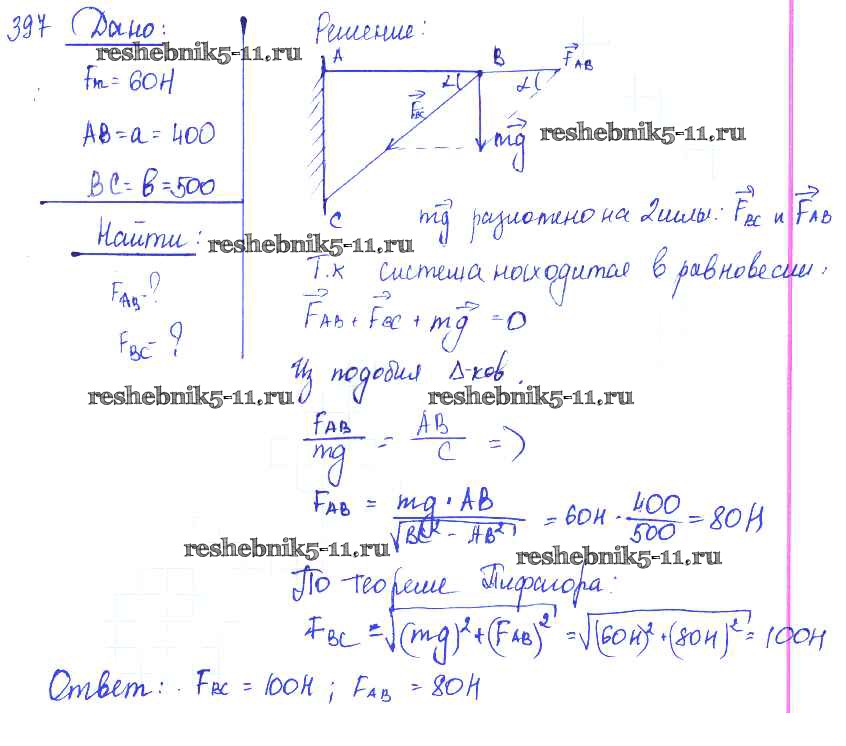 397 Дано:
reshebnik5-11.ru
Fт = 60Н
AB = a = 400
BC = b = 500
Найти:
reshebnik5-11.ru
F_AB - ?
F_BC - ?
reshebnik5-11.ru
Решение:
A B F_AB
α α
F_BC
mg
reshebnik5-11.ru
C
mg разложено на 2 силы: F_BC и F_AB
Т.к система находится в равновесии:
F_AB + F_BC + mg = 0
Из подобия Δ-ков.
reshebnik5-11.ru
F_AB / mg = AB / C =>
F_AB = mg · AB / √(BC² - AB²) = 60Н · 400/500 = 80Н
reshebnik5-11.ru
reshebnik5-11.ru
По теореме Пифагора:
F_BC = √((mg)² + (F_AB)²) = √((60Н)² + (80Н)²) = 100Н
Ответ: F_BC = 100Н ; F_AB = 80Н